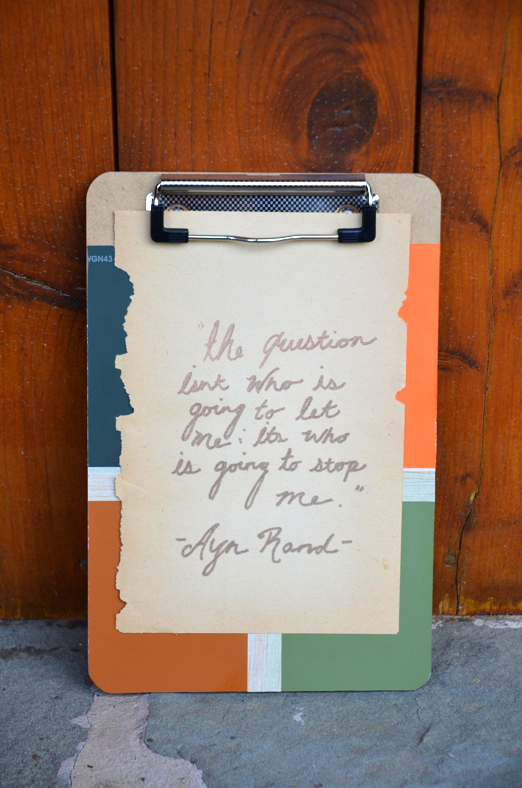 VGN43
"the Question
isnt who is
going to let
me: its who
is going to stop
me."
-Ayn Rand-